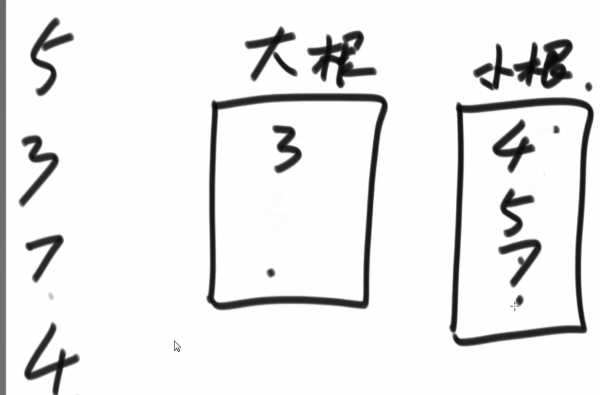 5
3
7
4
大根
3
小根
4
5
7